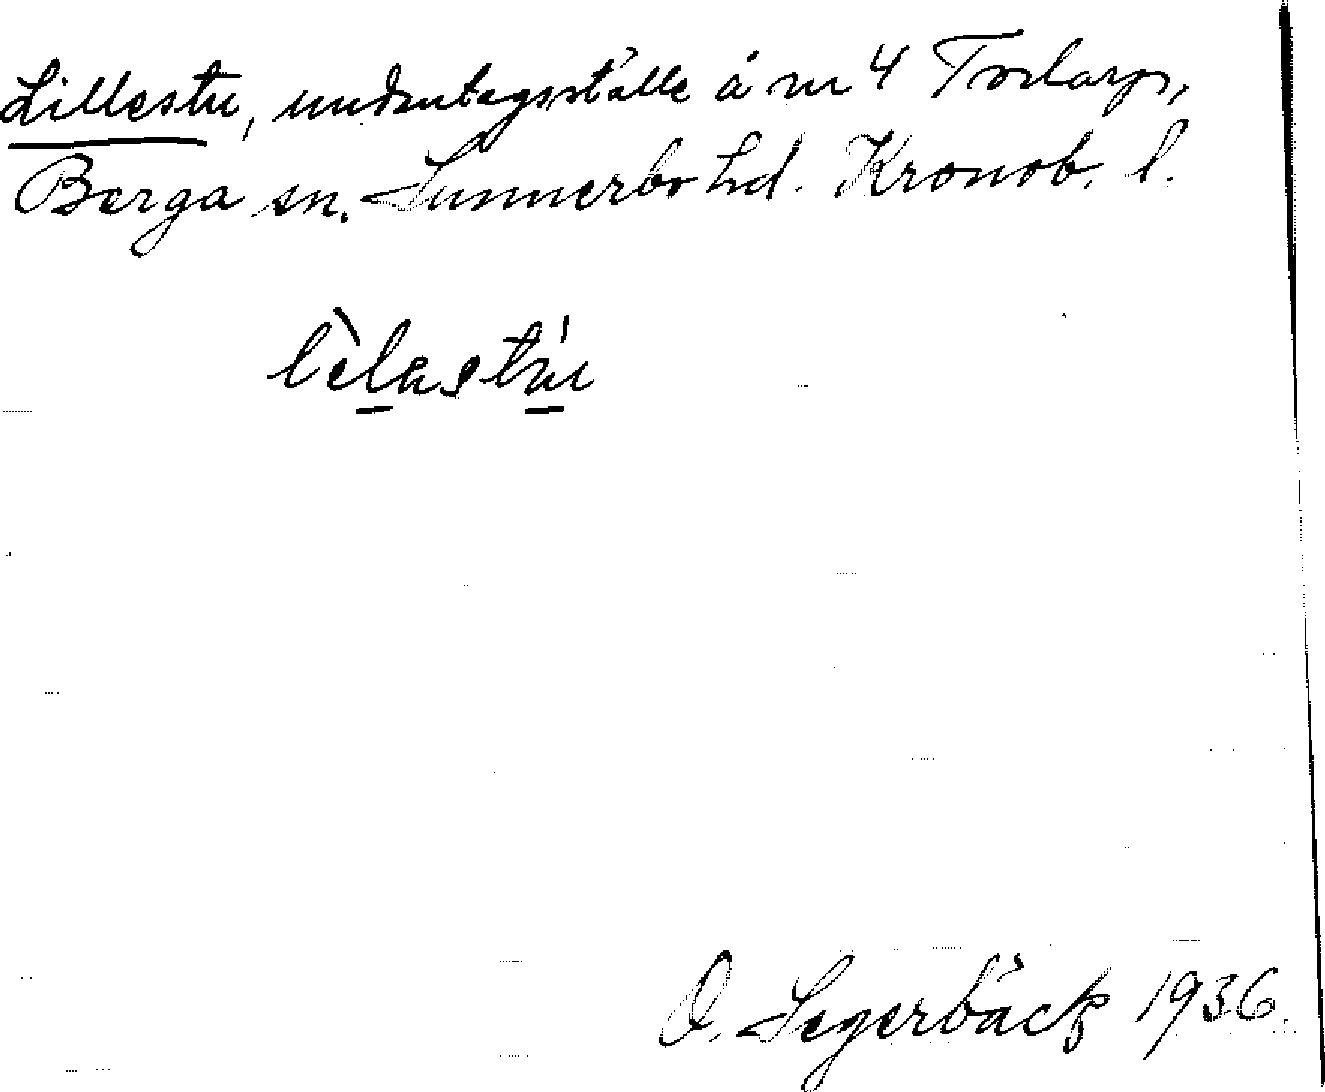 Lillestu, undantagsställe å nr 4 Torlarp,
Berga sn. Sunnerbo hd. Kronob. l.
lèlastúu
O. Segerbäck 1936.